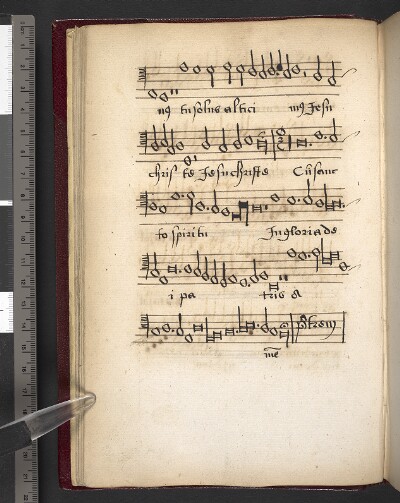 nus tu solus altici mus Jesu
chris te Jesu christe Cu sanc
to spiritu In gloria de
i pa tris a
me